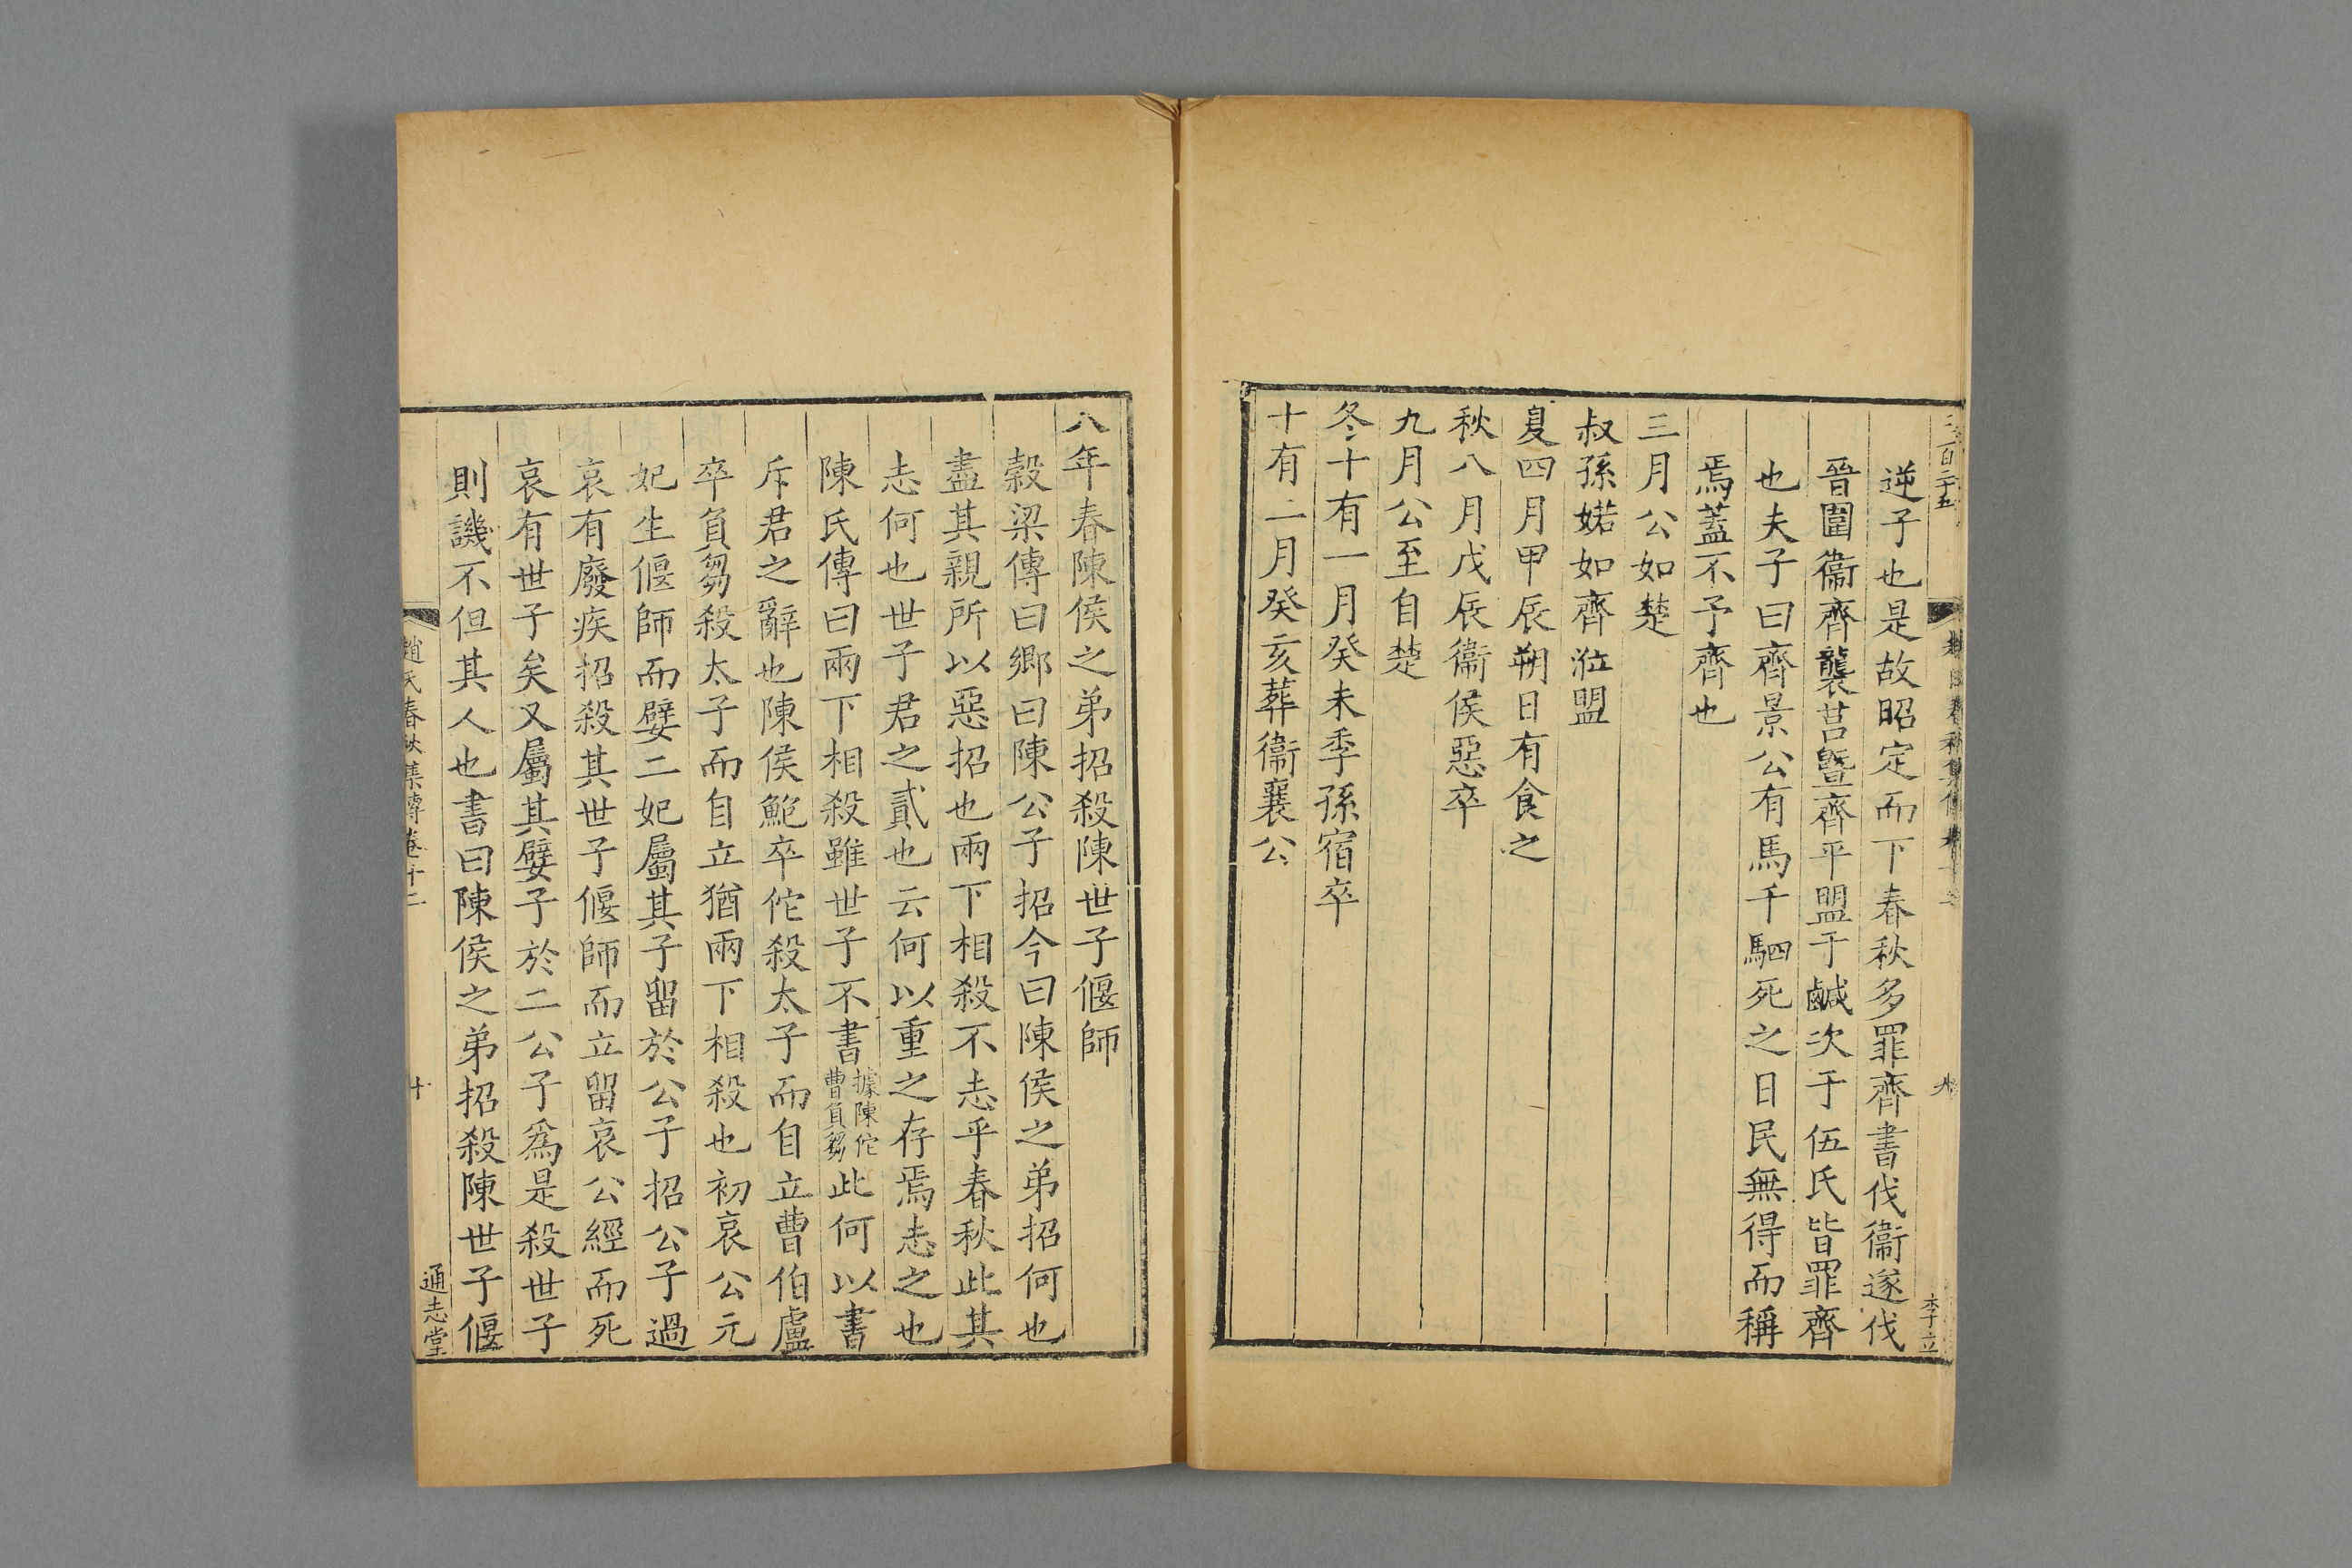 逆子也是故昭定而下春秋多罪齊書伐衞遂伐
晉圍衞齊襲莒曁齊平盟于鹹次于伍氏皆罪齊
也夫子曰齊景公有馬千駟死之日民無得而稱
焉蓋不予齊也
三月公如楚
叔孫婼如齊涖盟
夏四月甲辰朔日有食之
秋八月戊辰衞侯惡卒
九月公至自楚
冬十有一月癸未季孫宿卒
十有二月癸亥葬衞襄公
八年春陳侯之弟招殺陳世子偃師
榖梁傳曰鄉曰陳公子招今曰陳侯之弟招何也
盡其親所以惡招也兩下相殺不志乎春秋此其
志何也世子君之貳也云何以重之存焉志之也
陳氏傳曰兩下相殺雖世子不書據陳佗曹負芻此何以書
斥君之辭也陳侯鮑卒佗殺太子而自立曹伯盧
卒負芻殺太子而自立猶兩下相殺也初哀公元
妃生偃師而嬖二妃屬其子留於公子招公子過
哀有廢疾招殺其世子偃師而立留哀公經而死
哀有世子矣又屬其嬖子於二公子爲是殺世子
則譏不但其人也書曰陳侯之弟招殺陳世子偃
趙氏春秋集傳卷十二
十
通志堂
三百二十五
九
李立